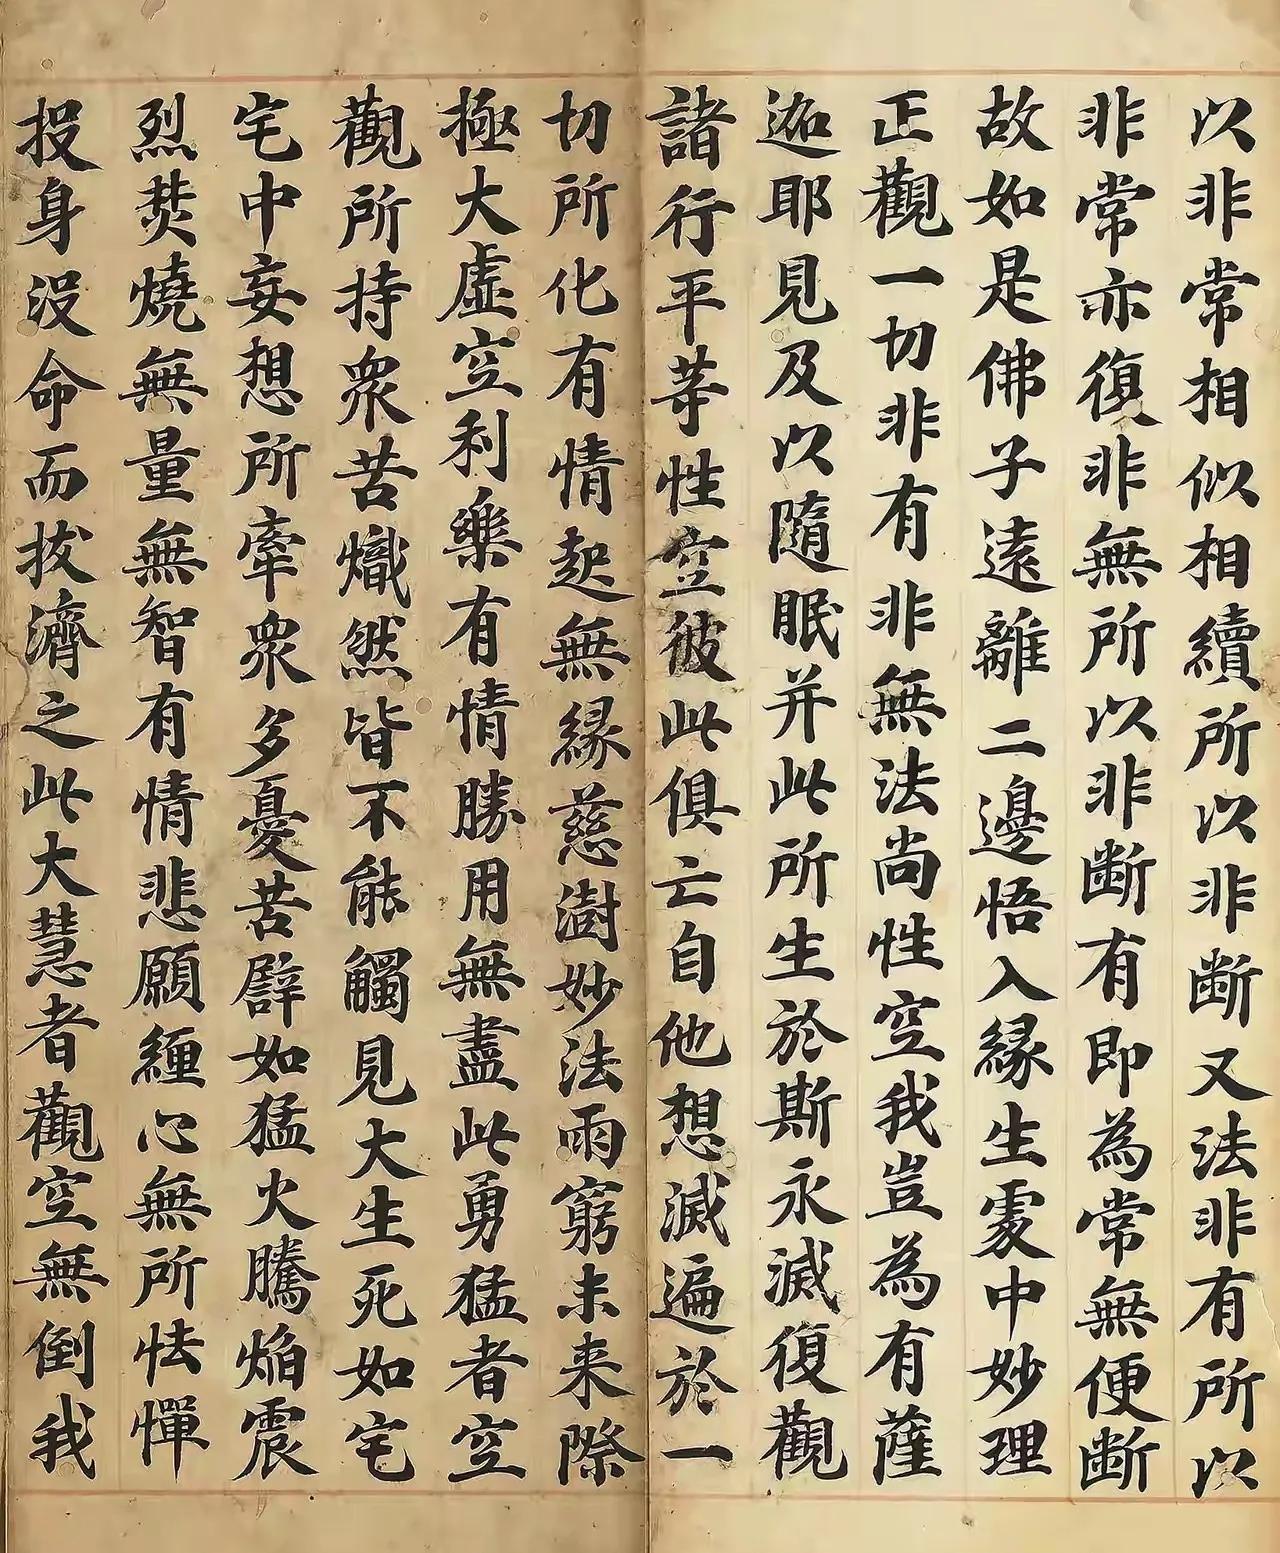 以非常相似相續所以非斷又法非有所以
非常亦復非無所以非斷有即為常無便斷
故如是佛子遠離二邊悟入緣生處中妙理
正觀一切非有非無法尚性空我豈為有薩
迦耶見及以隨眠并此所生於斯永滅復觀
諸行平等性空彼此俱亡自他想滅遍於一
切所化有情起無緣慈澍妙法雨窮未來際
極大虛空利樂有情勝用無盡此勇猛者空
觀所持眾苦熾然皆不能觸見大生死如宅
宅中妄想所牽眾多憂苦譬如猛火騰焰震
烈焚燒無量無智有情悲願纏心無所怯憚
投身沒命而拔濟之此大慧者觀空無倒我